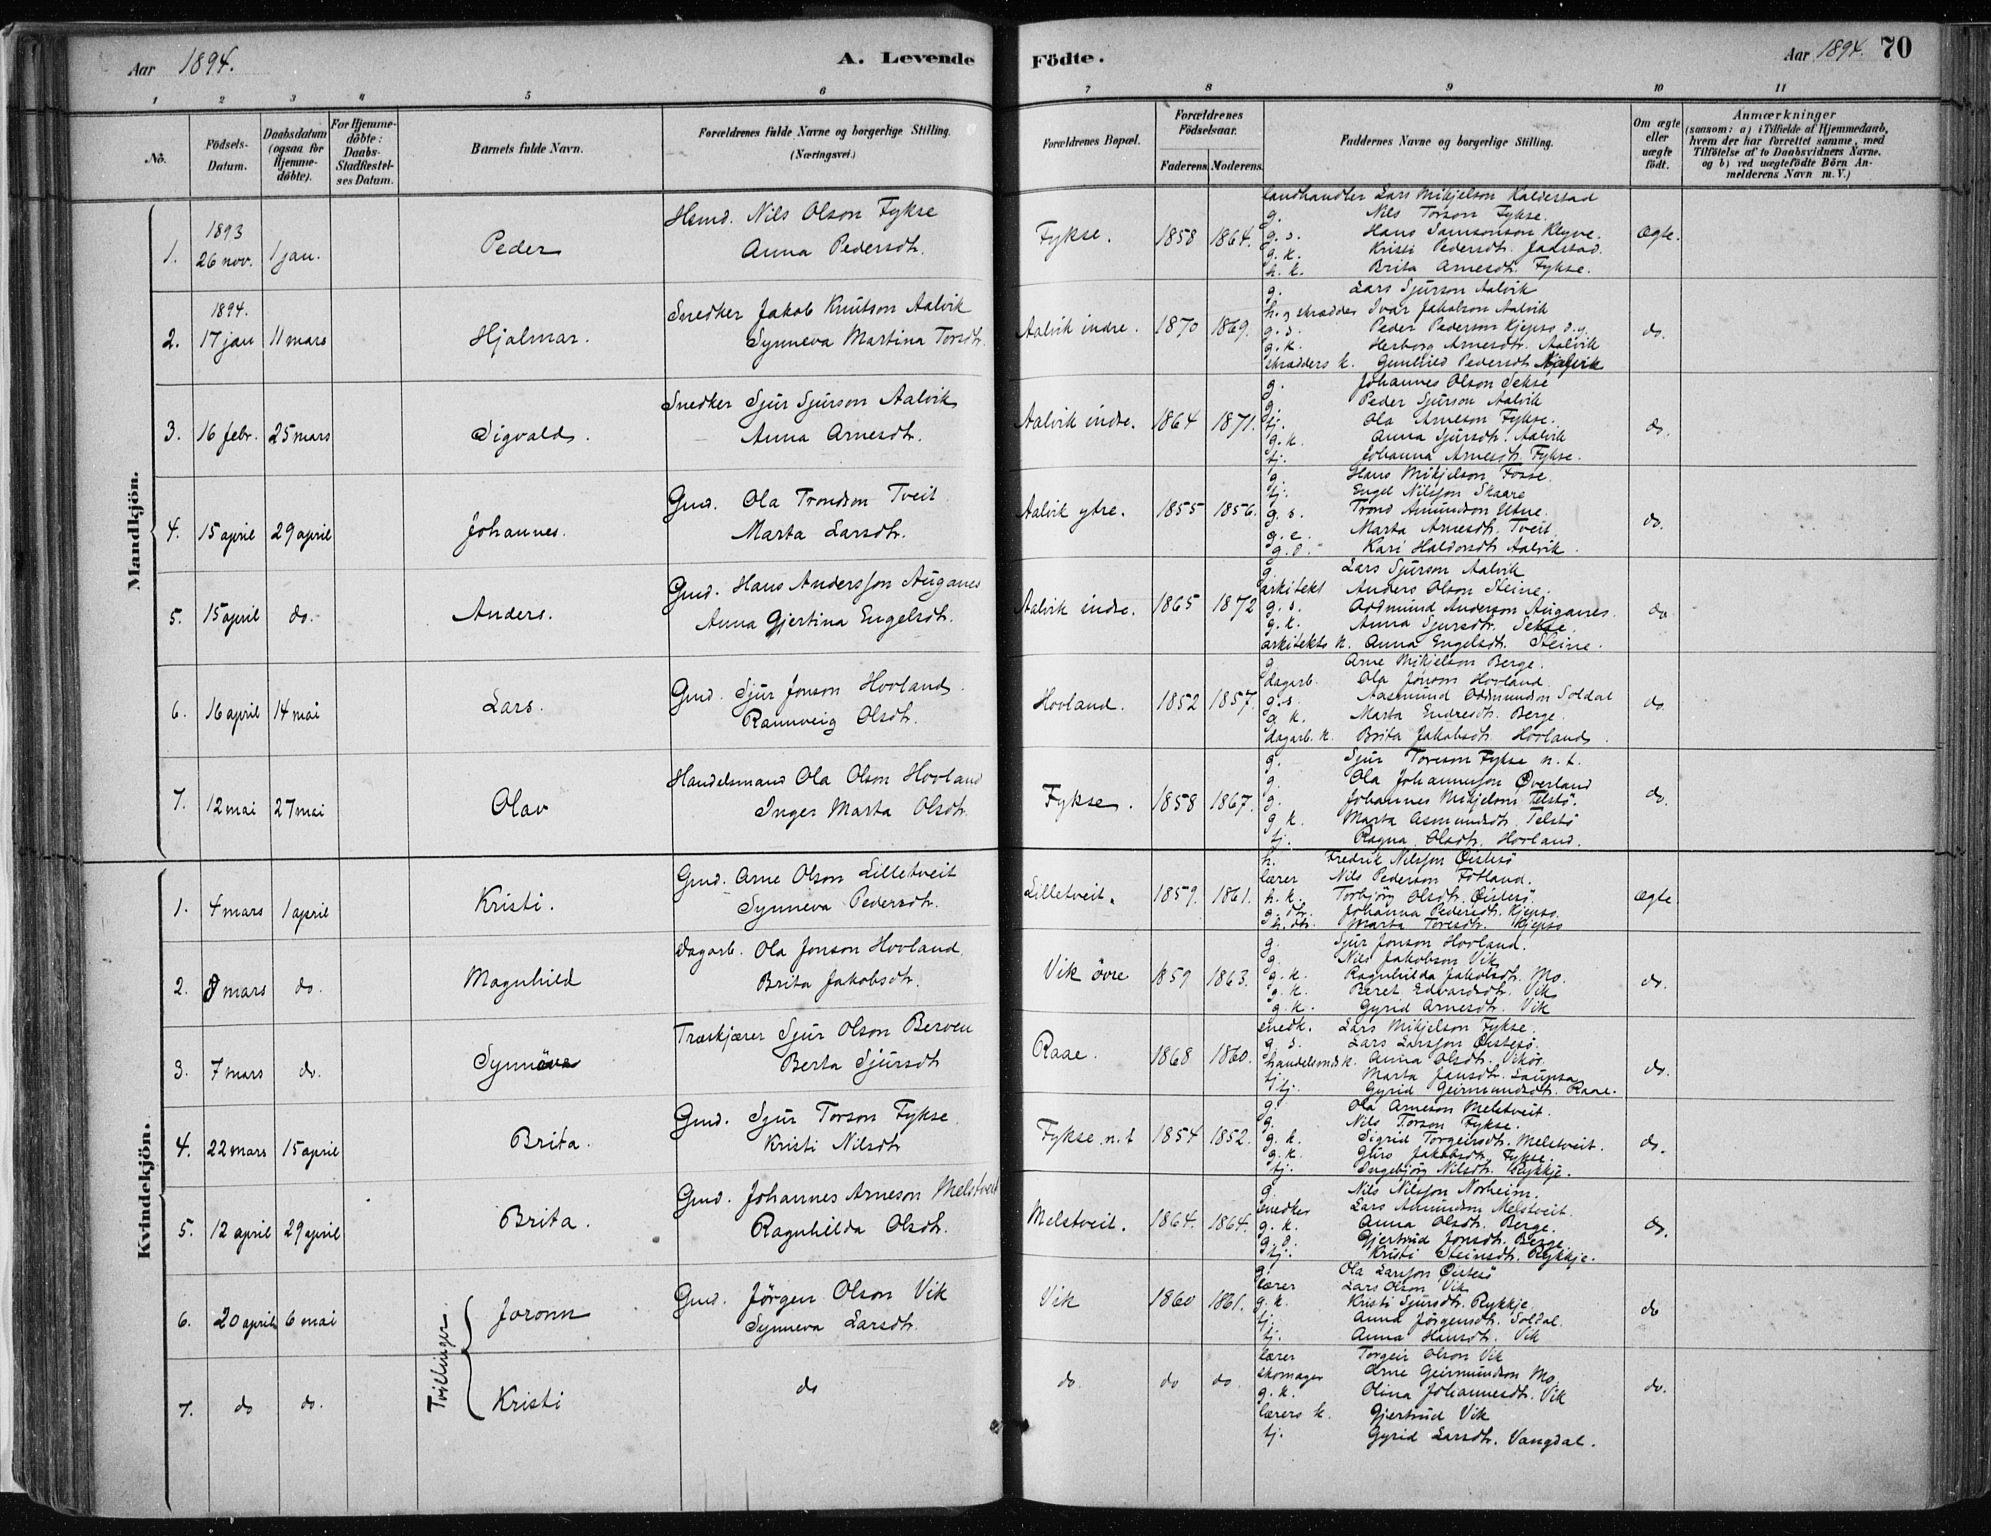 Aar 1894. A. Levende Födte. Aar 1894. 70
1 2 3 4 5 6 7 8 9 10 11
No. Födsels-Datum. Daabsdatum (ogsaa for Hjemmedöbte). For Hjemmedöbte: Daabs-Stadfæstelses Datum. Barnets fulde Navn. Forældrenes fulde Navne og borgerlige Stilling. (Næringsvei.) Forældrenes Bopæl. Forældrenes Födselsaar. Faderens. Moderens. Faddernes Navne og borgerlige Stilling. Om ægte eller uægte födt. Anmærkninger (saasom: a) i Tilfælde af Hjemmedaab, hvem der har forrettet samme, med Tilföielse af to Daabsvidners Navne, og b) ved uægtefödte Börn Anmelderens Navn m. V.)
Mandkjön.
1. 1893 26 nov. 1 jan. Peder Hsmd. Nils Olson Fykse
Anna Pedersdtr. Fykse. 1858 1864. ægte.
landhandler Lars Mikjelson Kaldestad
g. Nils Torson Fykse.
g. s. Hans Samsonson Kleyve.
g. k. Kristi Pedersdtr.
h. k. Brita Arnesdtr. Fykse.
2. 1894. 17 jan 11 mars Hjalmar. Snedker Jakob Knutson Aalvik
Synneva Martina Torsdtr. Aalvik indre. 1870 1869. do.
g. Lars Sjurson Aalvik
h. og skrædder Ivar Jakobson Aalvik
g. s. Peder Pederson Kjepso
g. k. Herborg Arnesdtr. Aalvik
skrædders k. Gunhild Pedersdtr. Aalvik
3. 16 febr. 25 mars Sigvald. Snedker Sjur Sjurson Aalvik
Anna Arnesdtr. Aalvik indre. 1864 1871. do.
g. Johannes Olson Sekse
g. Peder Sjurson Aalvik
tj. Ola Arneson Fykse.
g. k. Anna Sjursdtr. Aalvik
tj. Johanna Arnesdtr. Fykse.
4. 15 april 29 april Johannes. Gmd. Ola Trondson Tveit
Marta Larsdtr. Aalvik ytre. 1855 1856. do.
g. Hans Mikjelson Fosse.
tj. Engel Nilsson Skaare
g. s. Trond Amundson Utne.
g. e. Marta Arnesdtr. Tveit.
g. d. Kari Haldorsdtr Aalvik.
5. 15 april do. Anders. Gmd. Hans Andersson Auganes
Anna Gjertina Engelsdtr. Aalvik indre. 1865 1872 do
g. Lars Sjurson Aalvik
arkitekt Anders Olson Steine.
g. s. Oddmund Anderson Auganes.
g. k. Anna Sjursdtr. Sekse.
arkitekts k. Anna Engelsdtr. Steine.
6. 16 april 14 mai Lars. Gmd. Sjur Jonson Hovland.
Rannveig Olsdtr. Hovland. 1852 1857. do.
g. Arne Mikjelson Berge.
dagarb. Ola Jonson Hovland
g. s. Aasmund Oddmundson Soldal
g. k. Marta Endresdtr. Berge.
dagarb. k. Brita Jakobsdtr. Hovland.
7. 12 mai 27 mai Olav Handelsmand Ola Olson Hovland
Inger Marta Olsdtr. Fykse. 1858 1867. do.
g. Sjur Torson Fykse n. t.
g. Ola Johannesson Øverland
g. Johannes Mikjelson Telstö.
g. k. Marta Asmundsdtr. Telstö
tj. Ragna Olsdtr. Hovland.
Kvindekjön.
1. 4 mars 1 april Kristi. Gmd. Arne Olson Lilletveit
Synneva Pedersdtr. Lilletveit. 1859. 1861. ægte
h. Fredrik Nilsson Øistesö
lærer Nils Pederson Fotland.
h. k. Torbjörg Olsdtr. Øistesö.
g. dtr. Johanna Pedersdtr. Kjepso.
h. dtr. Marta Toresdtr. Kjepso
2. 8 mars do. Magnhild Dagarb. Ola Jonson Hovland.
Brita Jakobsdtr. Vik övre 1859 1863. do.
g. Sjur Jonson Hovland.
g. Nils Jakobson Vik
g. k. Ragnhilda Jakobsdtr. Mo.
g. k. Beret Edvardsdtr. Vik
g. k. Gyrid Arnesdtr. Vik
3. 7 mars do. Synnöva Træskjærer Sjur Olson Berven
Berta Sjursdtr Raae. 1868 1860. do.
snedk. Lars Mikjelson Fykse.
g. s. Lars Larsson Øistesö.
handelsmds k. Anna Olsdtr. Vikör.
tj. Marta Jansdtr. Laupsa
tj. Gyrid Geirmundsdtr. Raae.
4. 22 mars 15 april Brita. Gmd. Sjur Torson Fykse
Kristi Nilsdtr Fykse n. t 1854 1852. do.
g. Ola Arneson Melstveit.
g. Nils Torson Fykse.
g. k. Sigrid Torgeirsdtr. Melstveit.
g. k. Guro Jakobsdtr. Fykse.
tj. Ingebjörg Nilsdtr. Rykkje.
5. 12 april 29 april Brita. Gmd. Johannes Arneson Melstveit
Ragnhilda Olsdtr. Melstveit. 1864. 1864. do.
g. Nils Nilsson Norheim.
snedker Lars Amundson Melstveit.
g. k. Anna Olsdtr. Berge.
g. g. Gjertrud Jonsdtr. Berge.
tj. Kristi Steinsdtr. Rykkje.
Tvillinger.
6. 20 april 6 mai Joronn Gmd. Jörgen Olson Vik
Synneva Larsdtr. Vik 1860 1861. do
g. Ola Larsson Øistesö
lærer Lars Olson Vik
g. k. Kristi Sjursdtr. Rykkje.
tj. Anna Jörgensdtr. Soldal.
tj. Anna Hansdtr. Vik
7. do do. Kristi do do. do do. do.
lærer Torgeir Olson Vik
skomager Arne Geirmundson Mo.
g. k. Olina Johannesdtr. Vik
lærers k. Gjertrud Vik
tj. Gyrid Larsdtr. Vangdal.